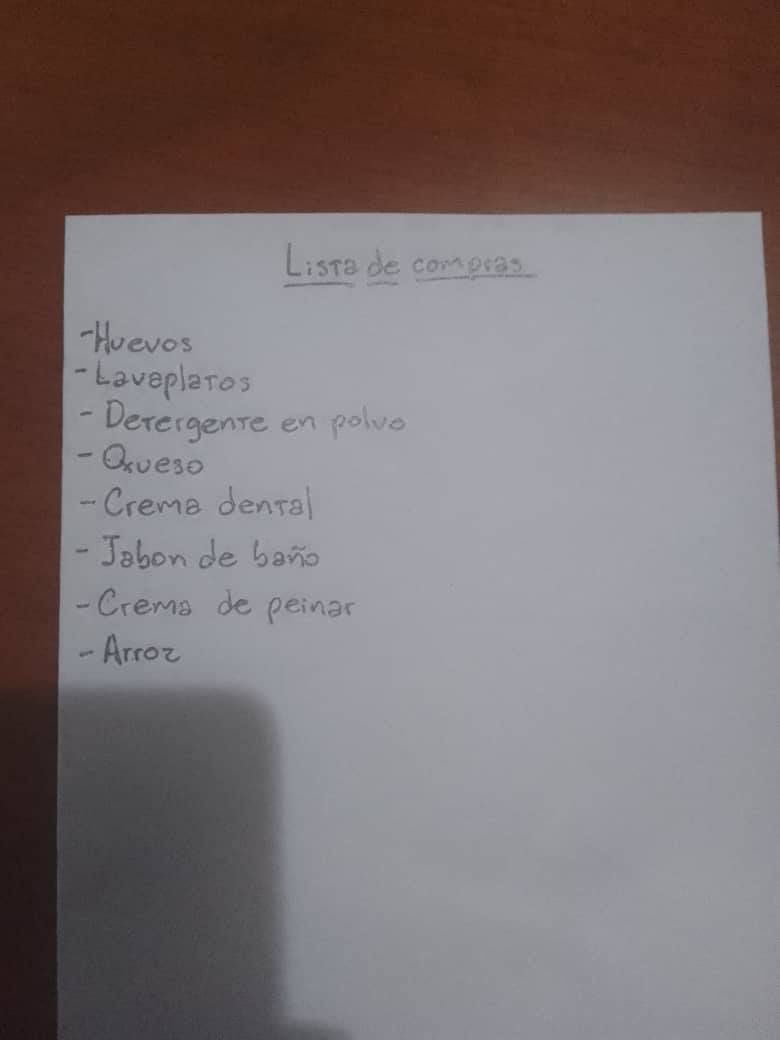 Lista de compras
-Huevos
-Lavaplatos
- Detergente en polvo
- Queso
- Crema dental
- Jabon de baño
- Crema de peinar
- Arroz